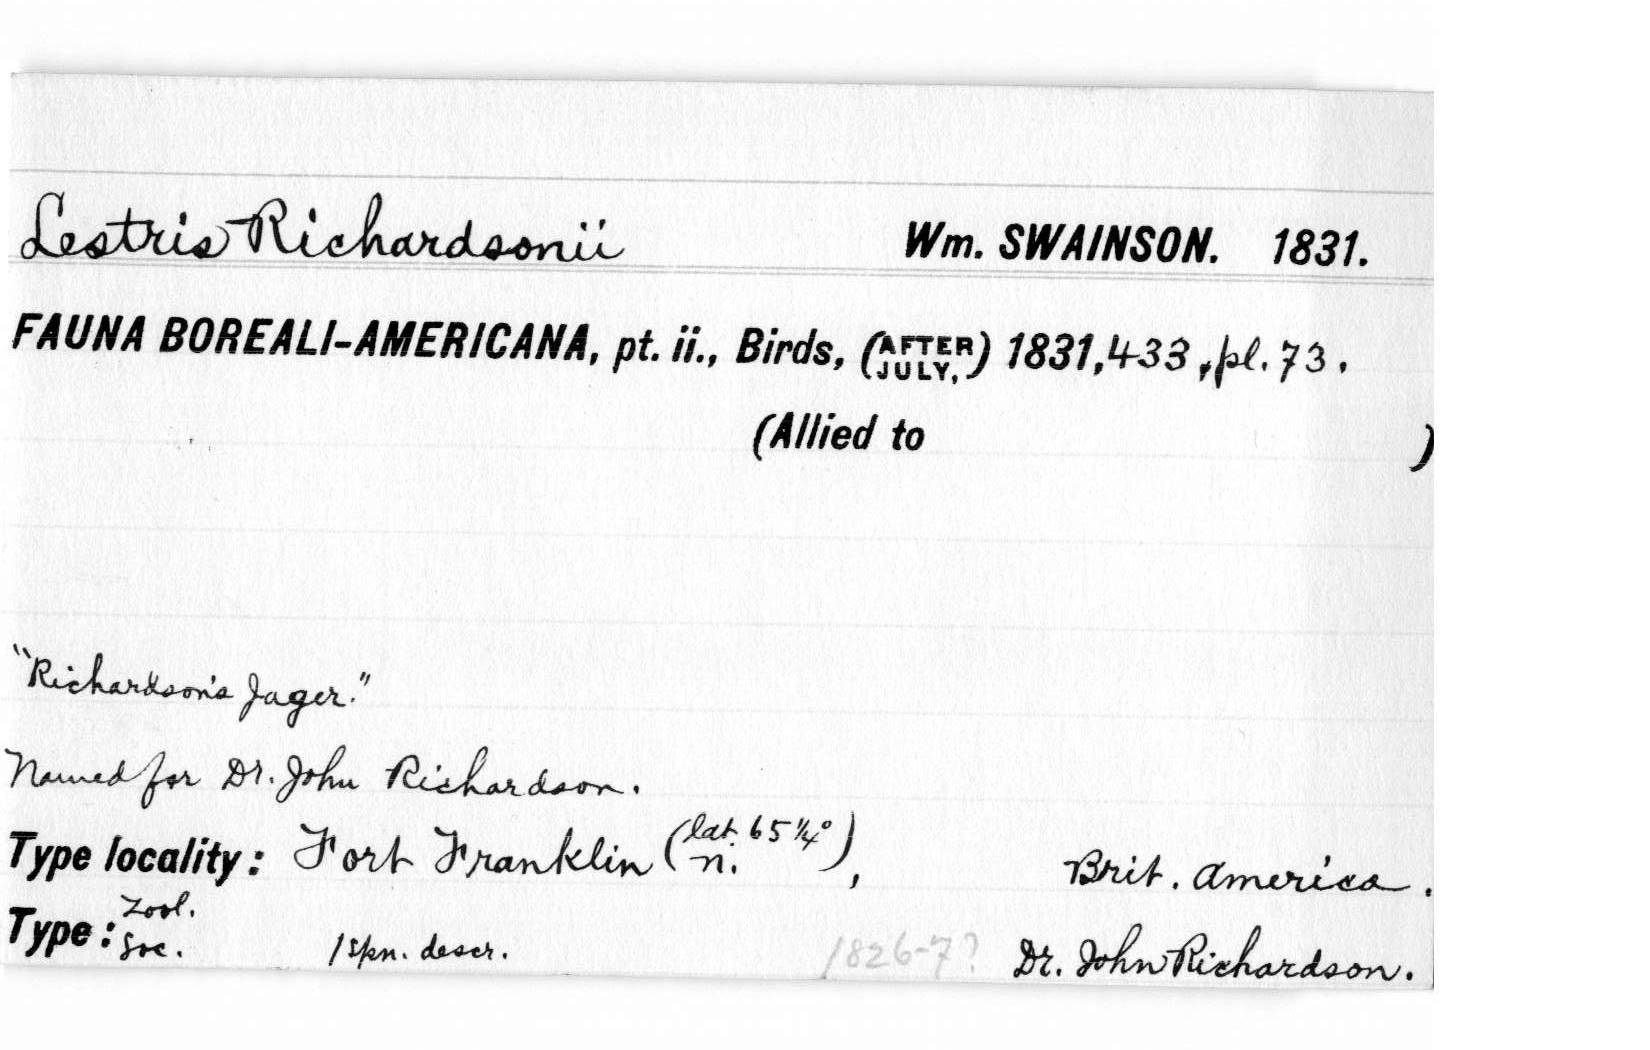 Lestris Richardsonii Wm. SWAINSON. 1831.
FAUNA BOREALI-AMERICANA, pt. ii., Birds, (AFTER JULY,) 1831, 433, pl. 73.
(Allied to )
"Richardson's Jager."
Named for Dr. John Richardson.
Type locality: Fort Franklin (lat. 65 1/4° n.), Brit. America.
Type: Zool. Soc. 1 spn. descr. 1826-7? Dr. John Richardson.